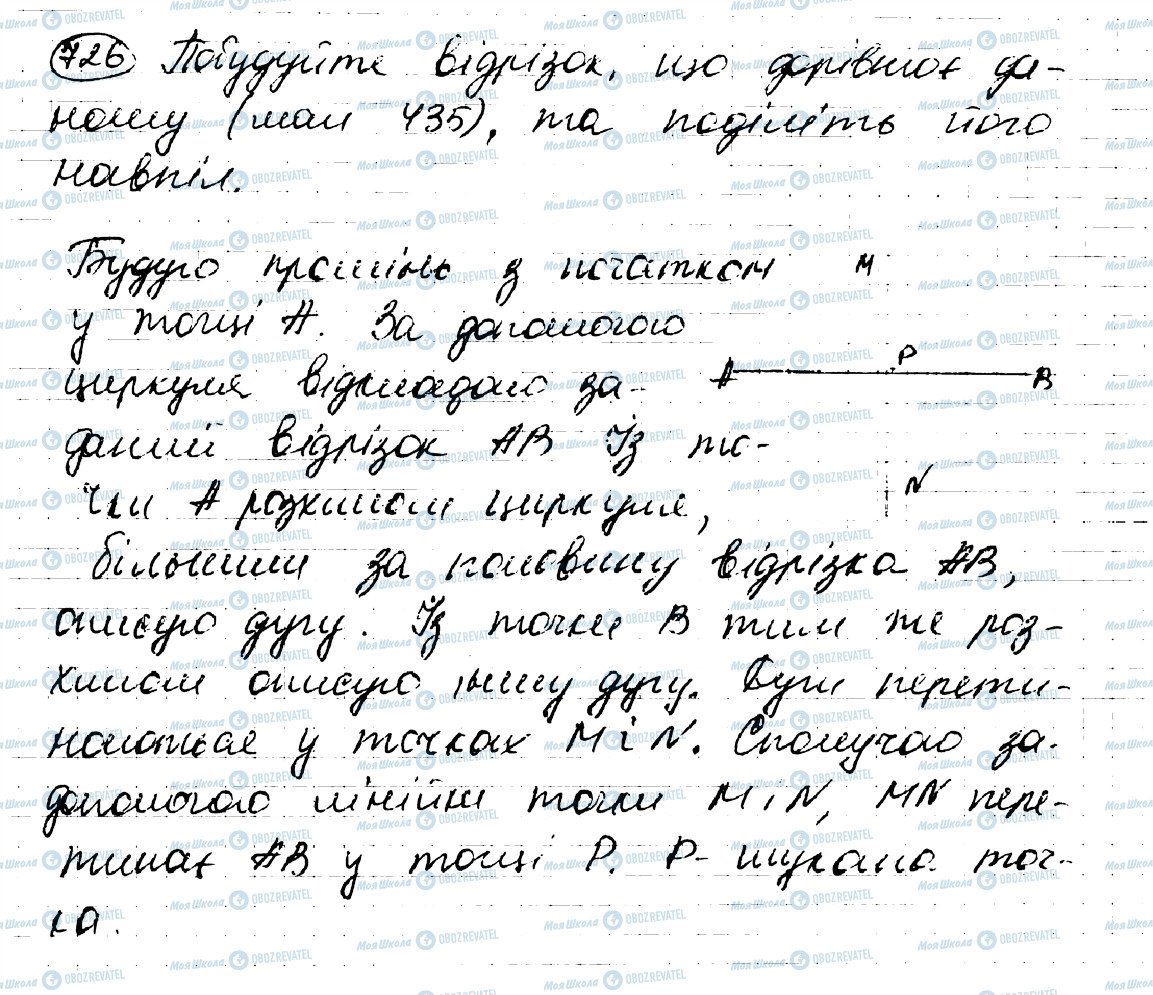 726 Побудуйте відрізок, що дорівнює да-
ному (мал 435), та поділіть його
навпіл.
Будую промінь з початком
у точці A. За допомогою
циркуля відкладаю за-
даний відрізок AB Із то-
чки A розхилом циркуля,
більшим за половину відрізка AB,
описую дугу. Із точки B тим же роз-
хилом описую іншу дугу. Дуги перети-
наються у точках M і N. Сполучаю за
допомогою лінійки точки M і N, MN пере-
тинає AB у точці P. P- шукана точ-
ка.
M
P
A B
N
МояШкола OBOZREVATEL